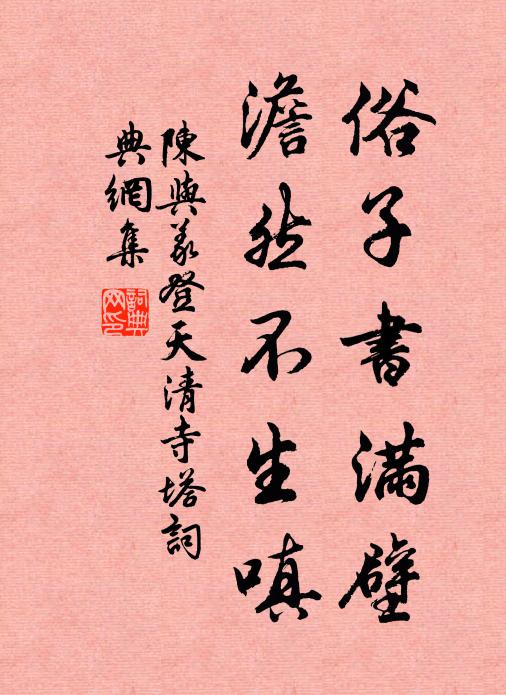 俗子書滿壁
澹然不生嗔
陳與義登天清寺塔詞
典網集
詞典網印